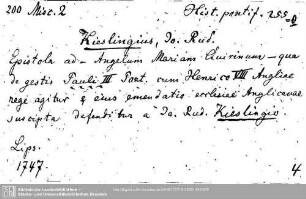 200 Misc. 2
Hist. pontif. 255
Kieslingius, Jo. Rud.
Epistola ad Angelum Mariam Quirinum - qua
de gestis Pauli III Pont. cum Henrico VIII Angliae
rege agitur & eius emendatio ecclesiae Anglicanae
suscipta defenditur a Jo. Rud. Kieslingio
Lips.
1747.
4